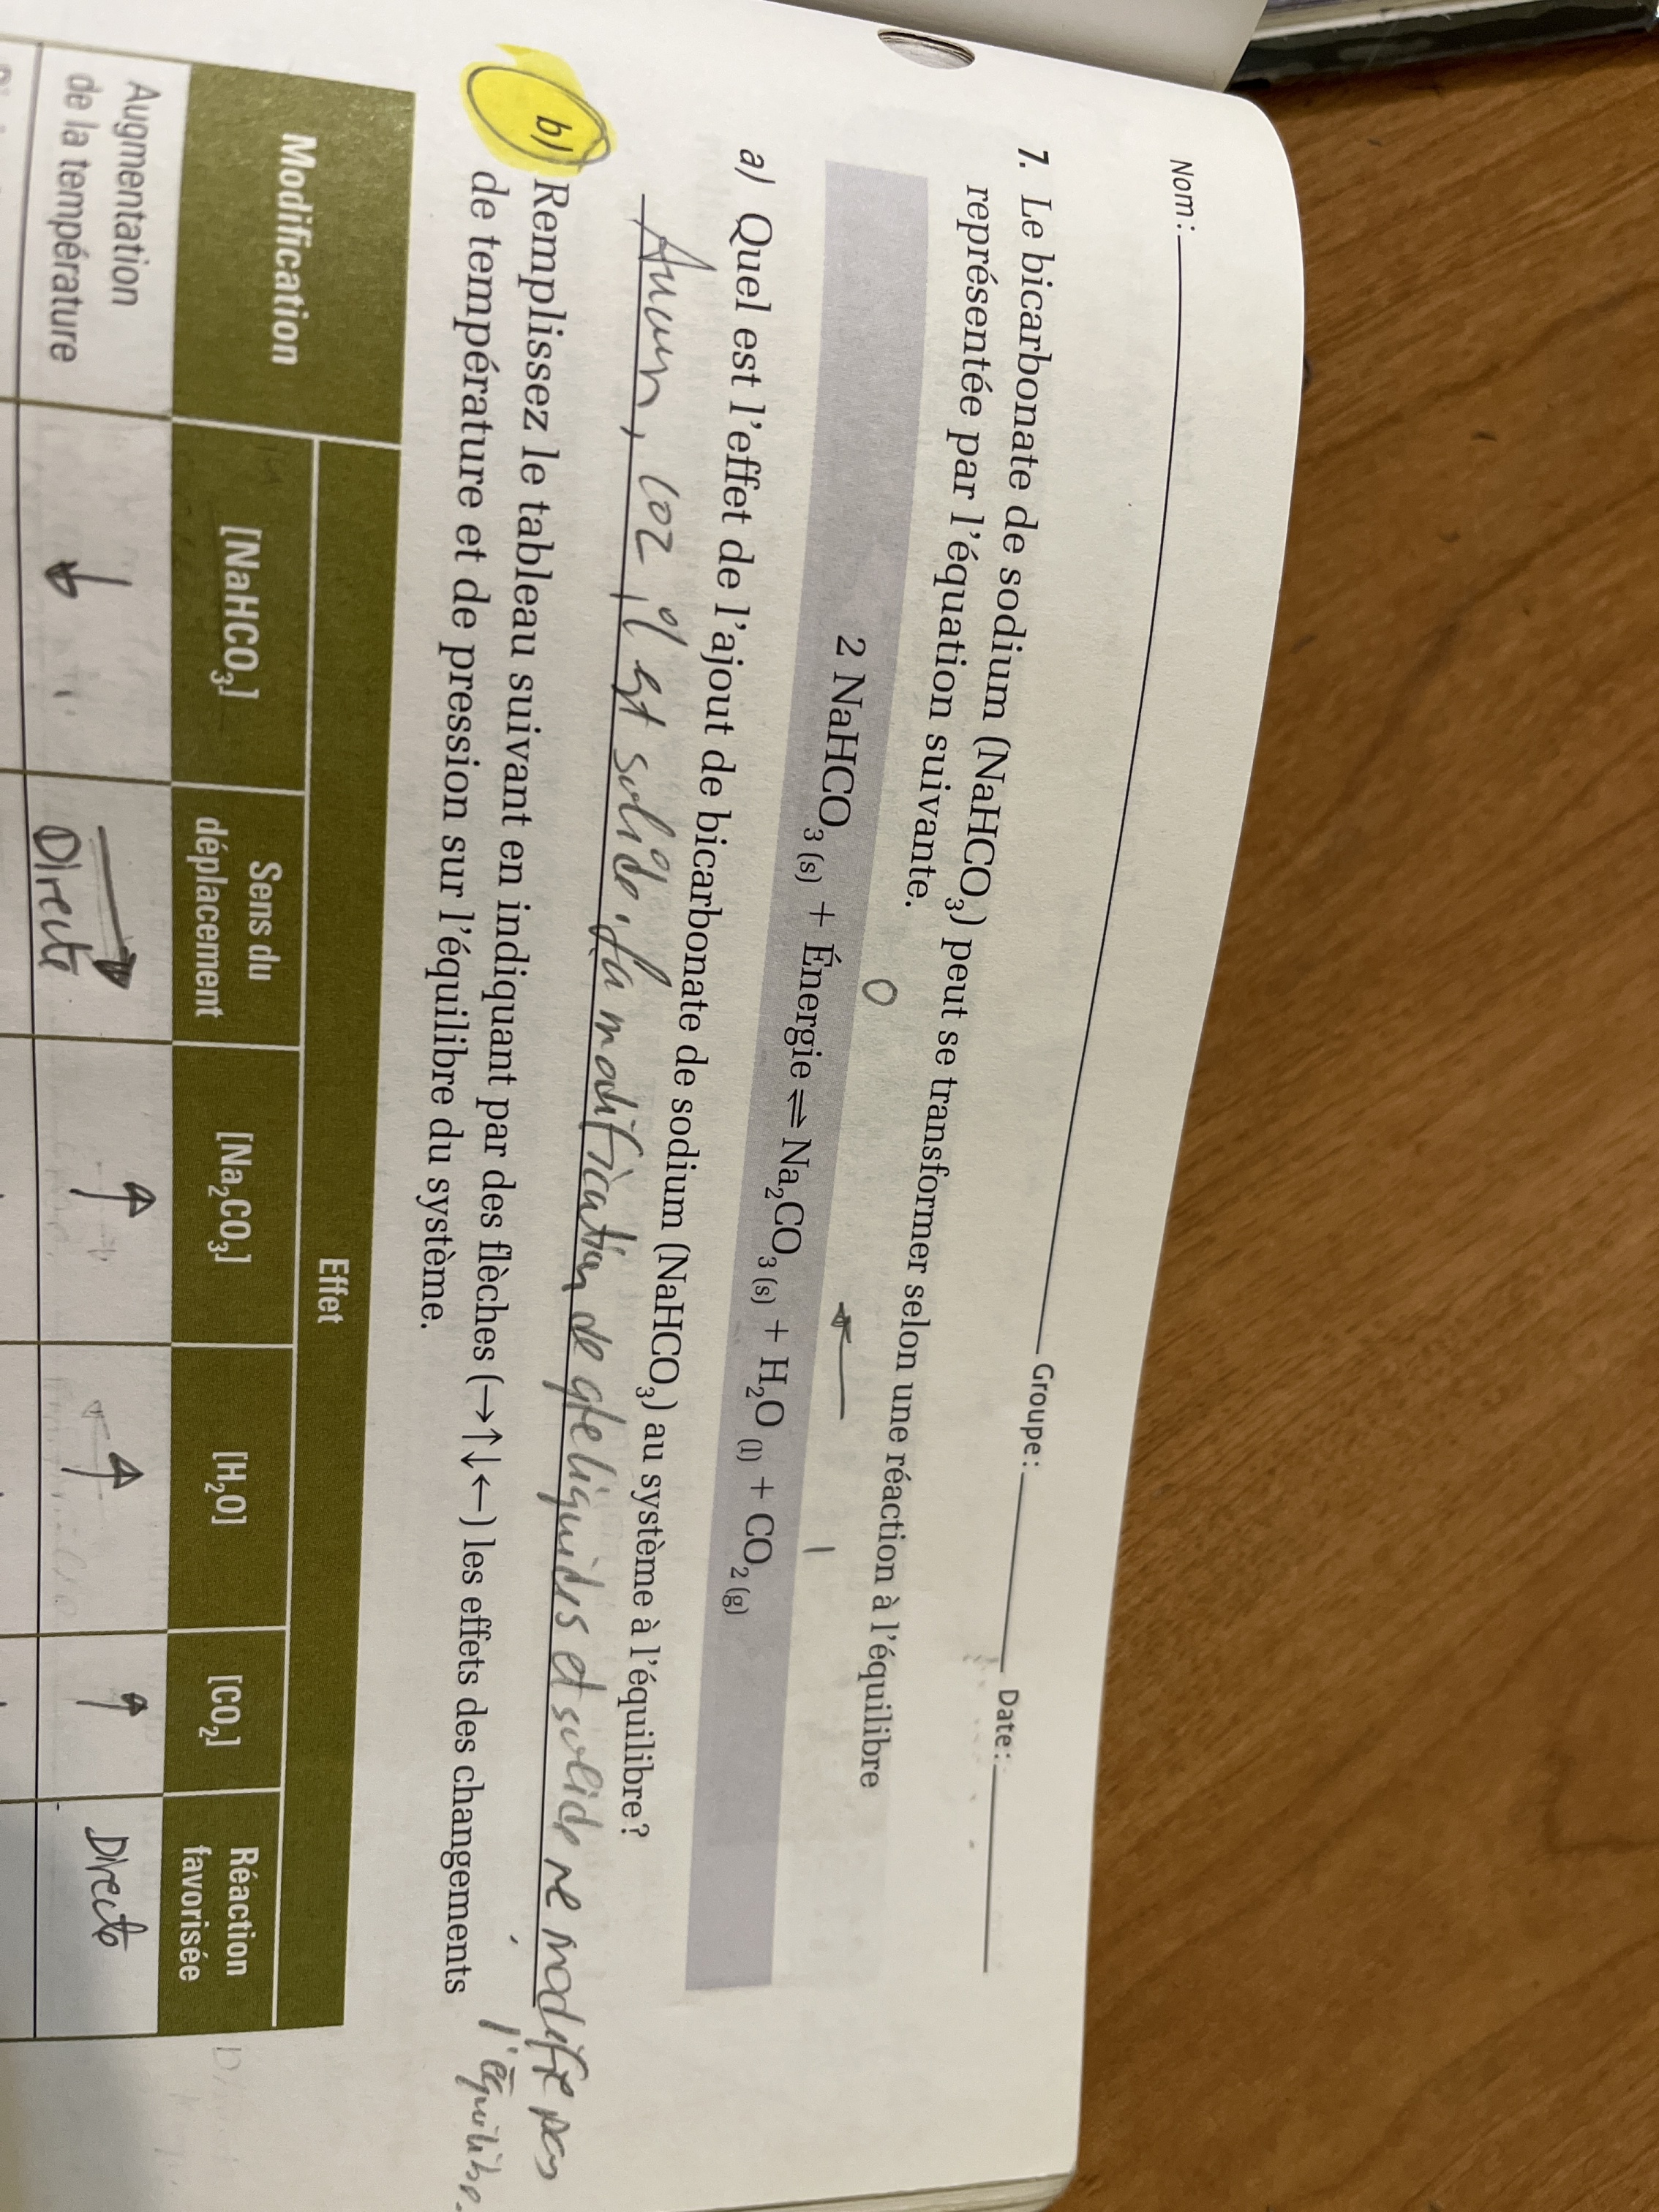 Nom: Groupe: Date:
7. Le bicarbonate de sodium (NaHCO₃) peut se transformer selon une réaction à l'équilibre
représentée par l'équation suivante.
0 ← 1
2 NaHCO₃ (s) + Énergie ⇌ Na₂CO₃ (s) + H₂O (l) + CO₂ (g)
a) Quel est l'effet de l'ajout de bicarbonate de sodium (NaHCO₃) au système à l'équilibre?
Aucun, coz il est solide. La modification de qte liquids et solide ne modifie pas
l'équilibre.
b) Remplissez le tableau suivant en indiquant par des flèches (→↑↓←) les effets des changements
de température et de pression sur l'équilibre du système.
Modification Effet
[NaHCO₃] Sens du déplacement [Na₂CO₃] [H₂O] [CO₂] Réaction favorisée
Augmentation
de la température ↓ → Directe ↑ ↑ ↑ Directe